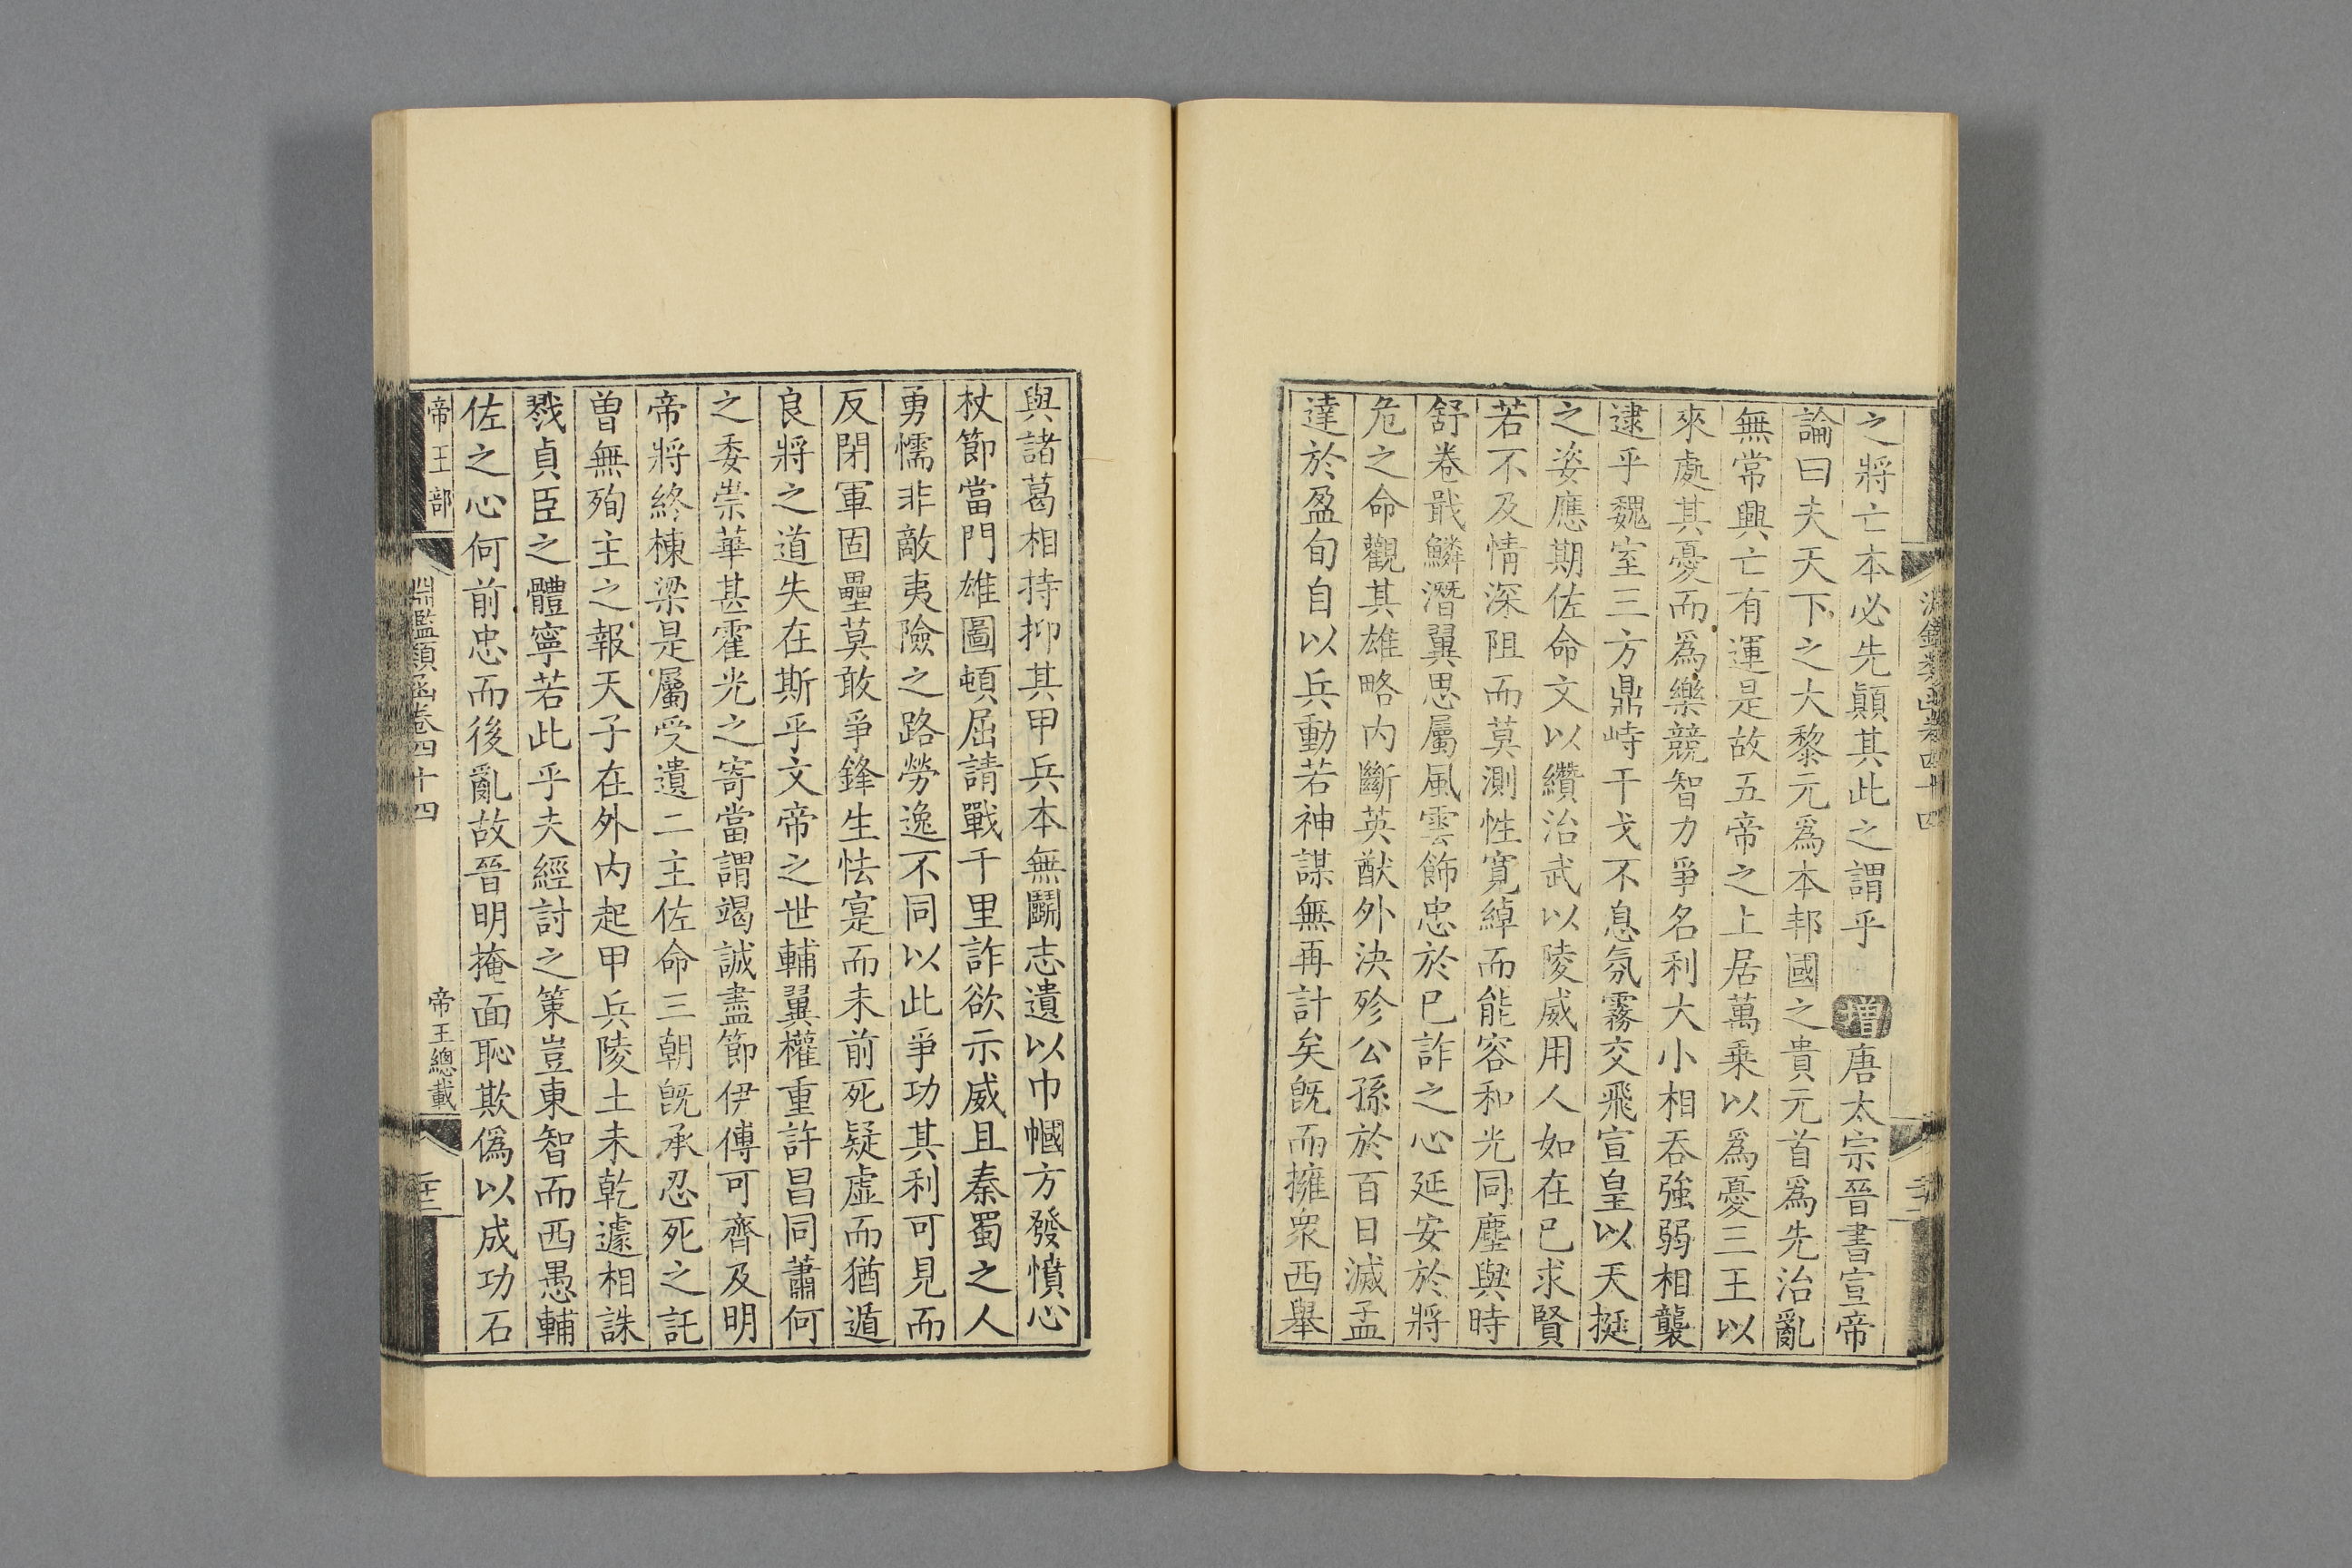 淵鑑類函卷四十四
之將亡本必先顛其此之謂乎增唐太宗晉書宣帝
論曰夫天下之大黎元爲本邦國之貴元首爲先治亂
無常興亡有運是故五帝之上居萬乗以爲憂三王以
來處其憂而爲樂競智力爭名利大小相吞強弱相襲
逮乎魏室三方鼎峙干戈不息氛霧交飛宣皇以天挺
之姿應期佐命文以纘治武以陵威用人如在已求賢
若不及情深阻而莫測性寛綽而能容和光同塵與時
舒卷戢鱗潛翼思屬風雲飾忠於已詐之心延安於將
危之命觀其雄略內斷英猷外決殄公孫於百日滅孟
達於盈旬自以兵動若神謀無再計矣旣而擁衆西舉
與諸葛相持抑其甲兵本無鬬志遺以巾幗方發憤心
杖節當門雄圖頓屈請戰千里詐欲示威且秦蜀之人
勇懦非敵夷險之路勞逸不同以此爭功其利可見而
反閉軍固壘莫敢爭鋒生怯寔而未前死疑虛而猶遁
良將之道失在斯乎文帝之世輔翼權重許昌同蕭何
之委崇華甚霍光之寄當謂竭誠盡節伊傅可齊及明
帝將終棟梁是屬受遺二主佐命三朝旣承忍死之託
曽無殉主之報天子在外內起甲兵陵土未乾遽相誅
戮貞臣之體寧若此乎夫經討之策豈東智而西愚輔
佐之心何前忠而後亂故晉明掩面恥欺僞以成功石
帝王部
淵鑑類函卷四十四
帝王總載